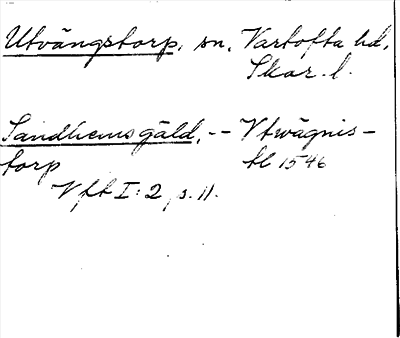 Utvängstorp, sn, Vartofta hd,
Skar. l.
Sandhems gäld, -- Vtwägnis-
torp tl 1546
Vft I: 2, s. 11.